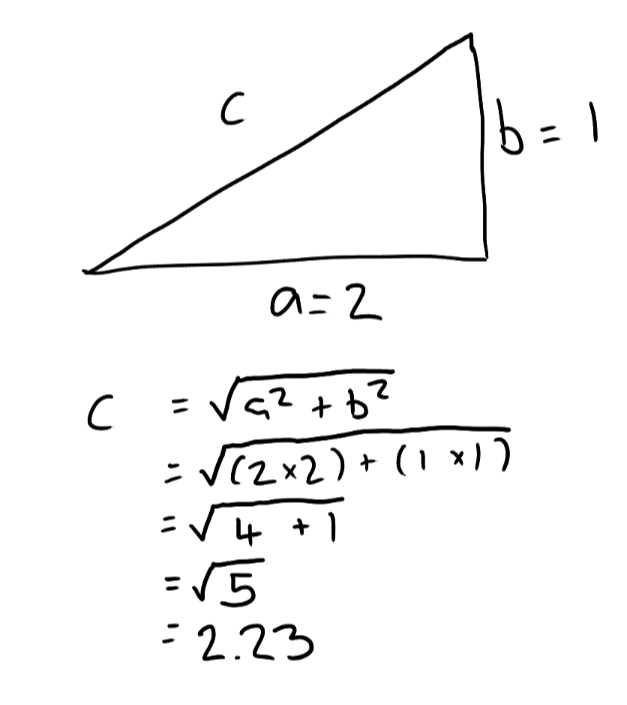 c
b = 1
a = 2
c = √(a² + b²)
= √((2×2) + (1×1))
= √(4 + 1)
= √5
= 2.23